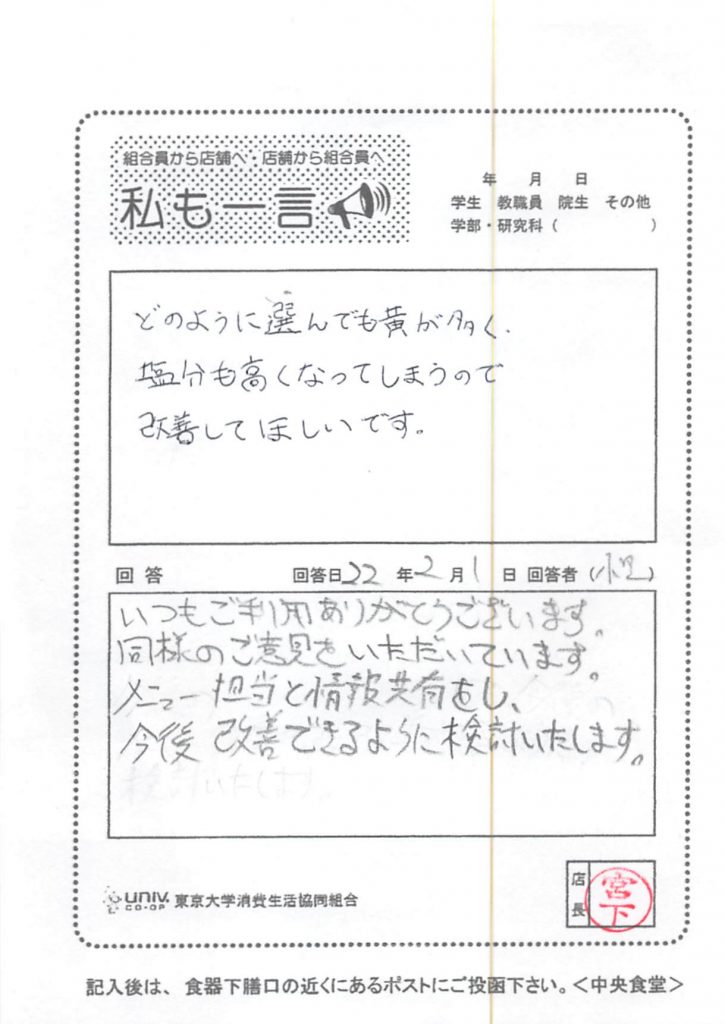 組合員から店舗へ・店舗から組合員へ
私も一言
年 月 日
学生 教職員 院生 その他
学部・研究科（ ）
どのように選んでも黄が多く、
塩分も高くなってしまうので
改善してほしいです。
回答 回答日22年2月1日 回答者（ ）
いつもご利用ありがとうございます。
同様のご意見をいただいています。
メニュー担当と情報共有をし、
今後改善できるように検討いたします。
検討いたします。
univ. CO-OP 東京大学消費生活協同組合
店長 宮下
記入後は、食器下膳口の近くにあるポストにご投函下さい。＜中央食堂＞